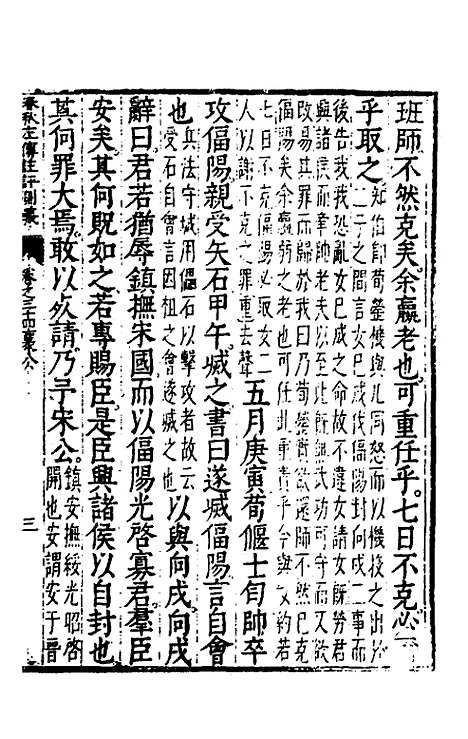 班師不然克矣余羸老也可重任乎七日不克必
乎取之
知伯即荀罃機與几同怒而以機投之出於
二子之間言女已成伐偪陽封向戌二事而
後告我我恐亂女已成之命故不違女請女旣勞君
與諸侯而牽帥老夫以至此旣無武功可守而又欲
改易其罪而歸於我曰乃荀罃實欲還師不然已克
偪陽矣余羸弱之老也可任此重責乎今與女約若
七日不克偪陽必取女二
人以謝不克之罪重去聲
五月庚寅荀偃士匄帥卒
攻偪陽親受矢石甲午滅之書曰遂滅偪陽言自會
也
兵法守城用石以擊攻者故云
受石自會言因柤之會遂滅之也
以與向戌向戌
辭曰君若猶辱鎮撫宋國而以偪陽光啓寡君羣臣
安矣其何貺如之若專賜臣是臣興諸侯以自封也
其何罪大焉敢以死請乃予宋公
鎮安撫綏光昭啓
開也安謂安于晉
春秋左傳註評測義
卷之三十四襄公
三